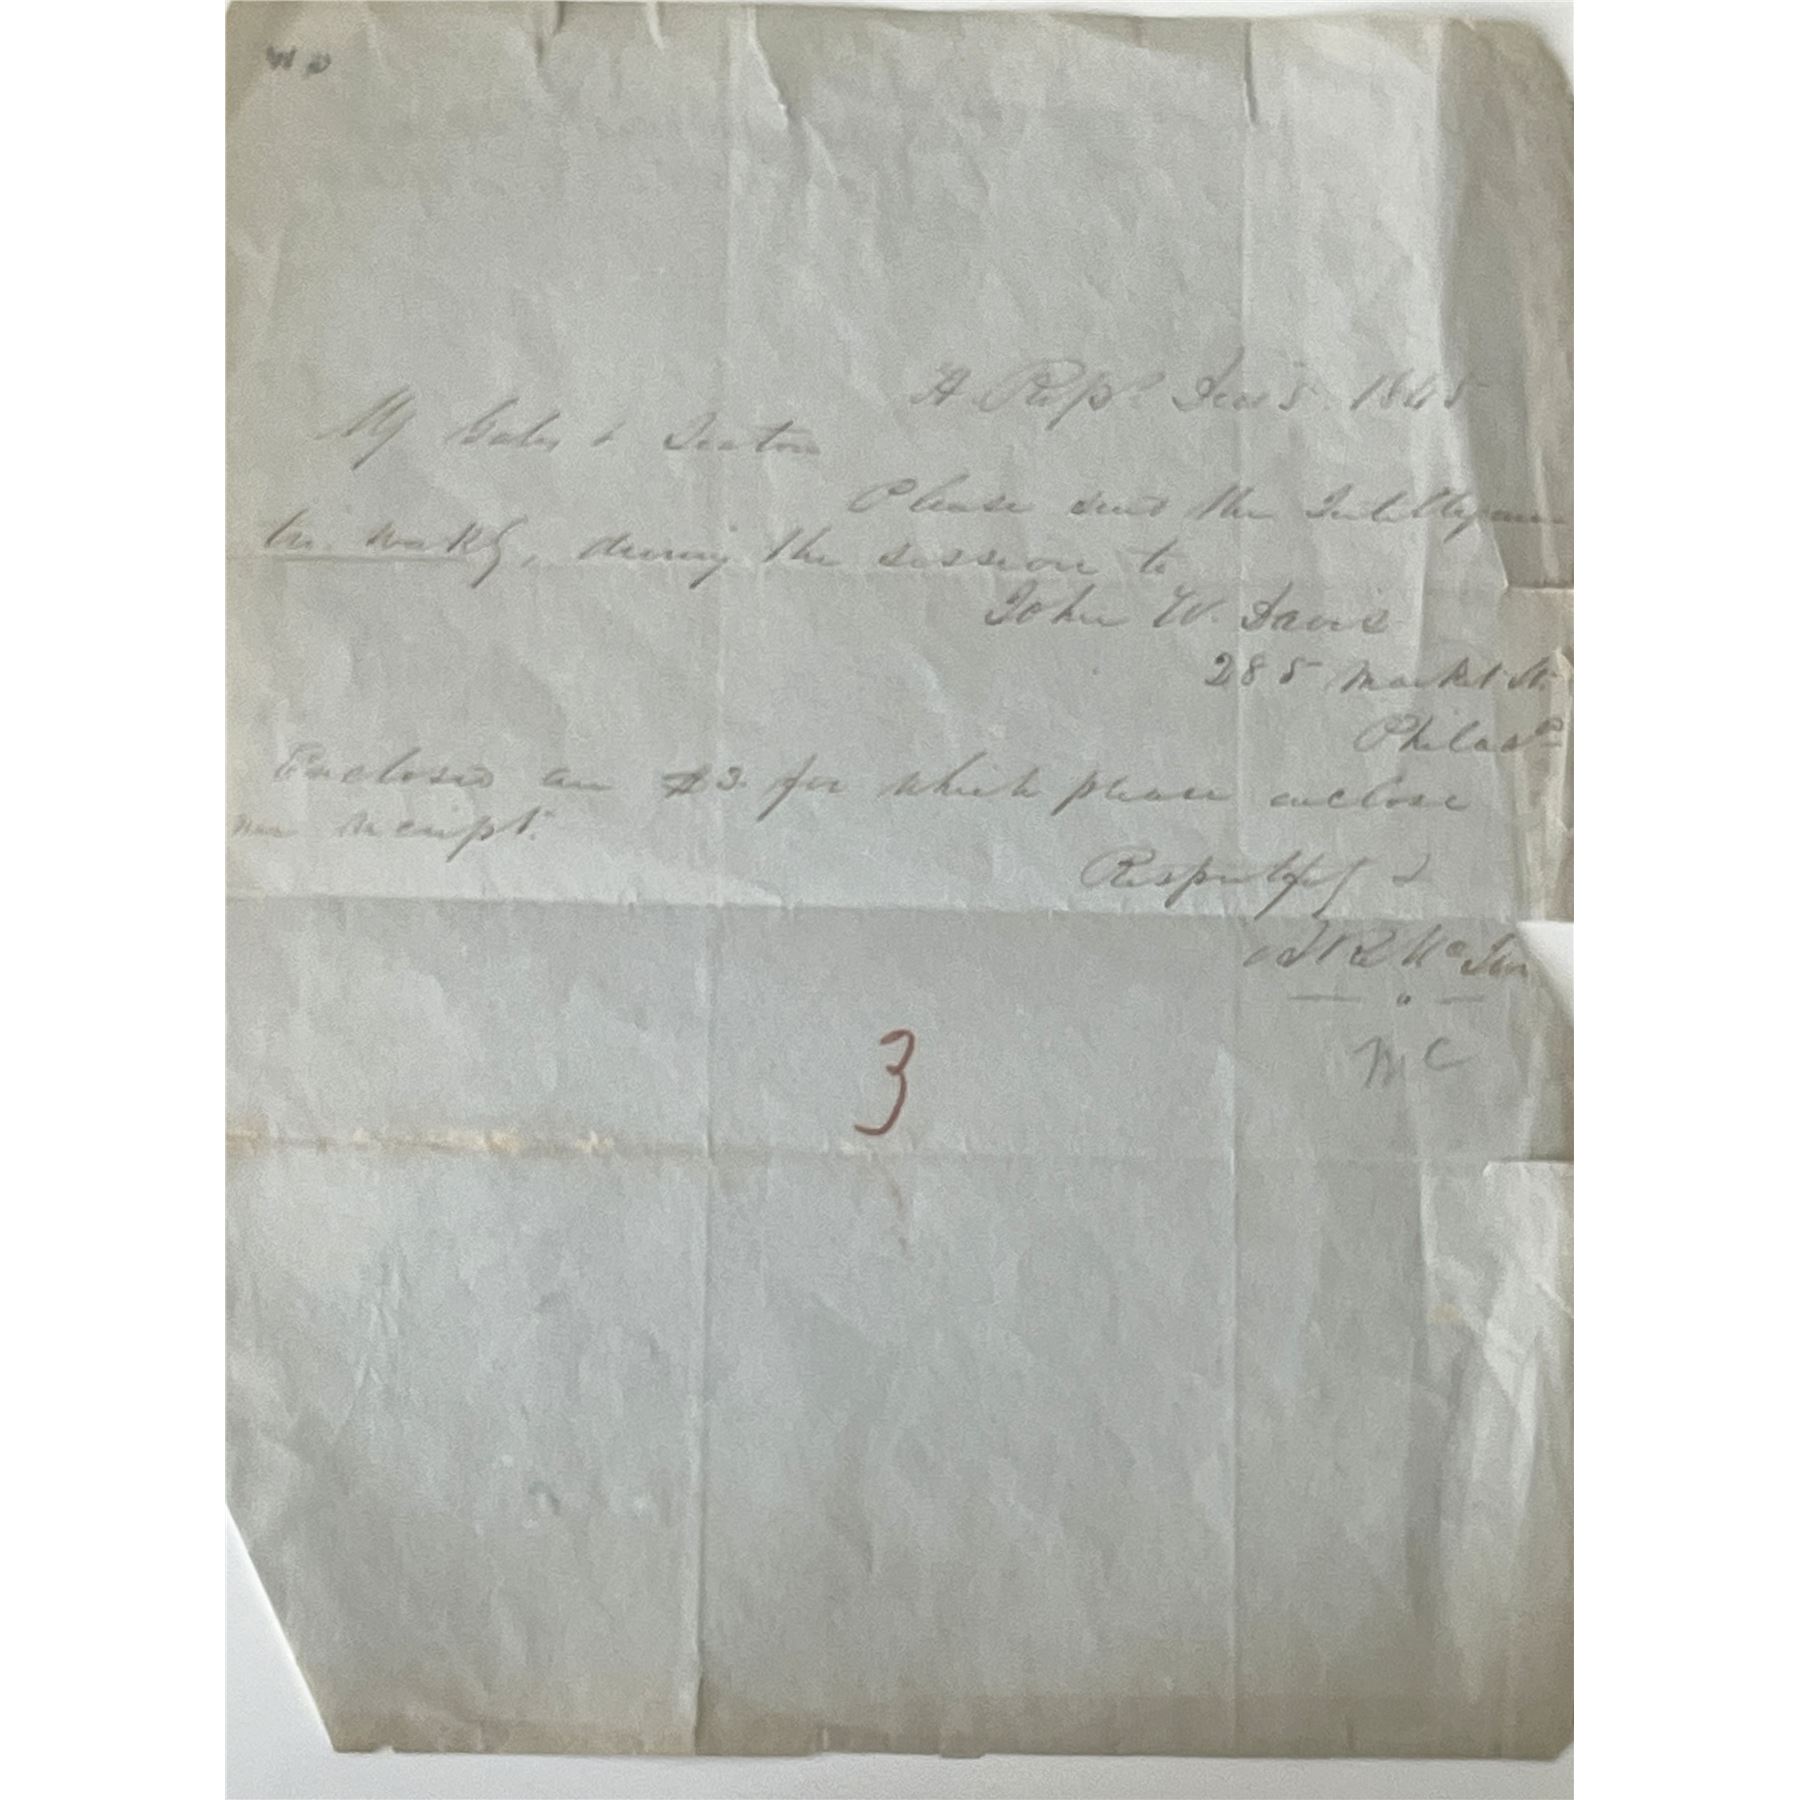 H. Reps. Dec 5. 1845
Ms Gales & Seaton
Please send the Intelligencer
tri. weekly, during the session to
John W. Davis
285 Market St.
Philad<sup>a</sup>
Enclosed are $3. for which please enclose
me receipt.
Respectfully
3
M C